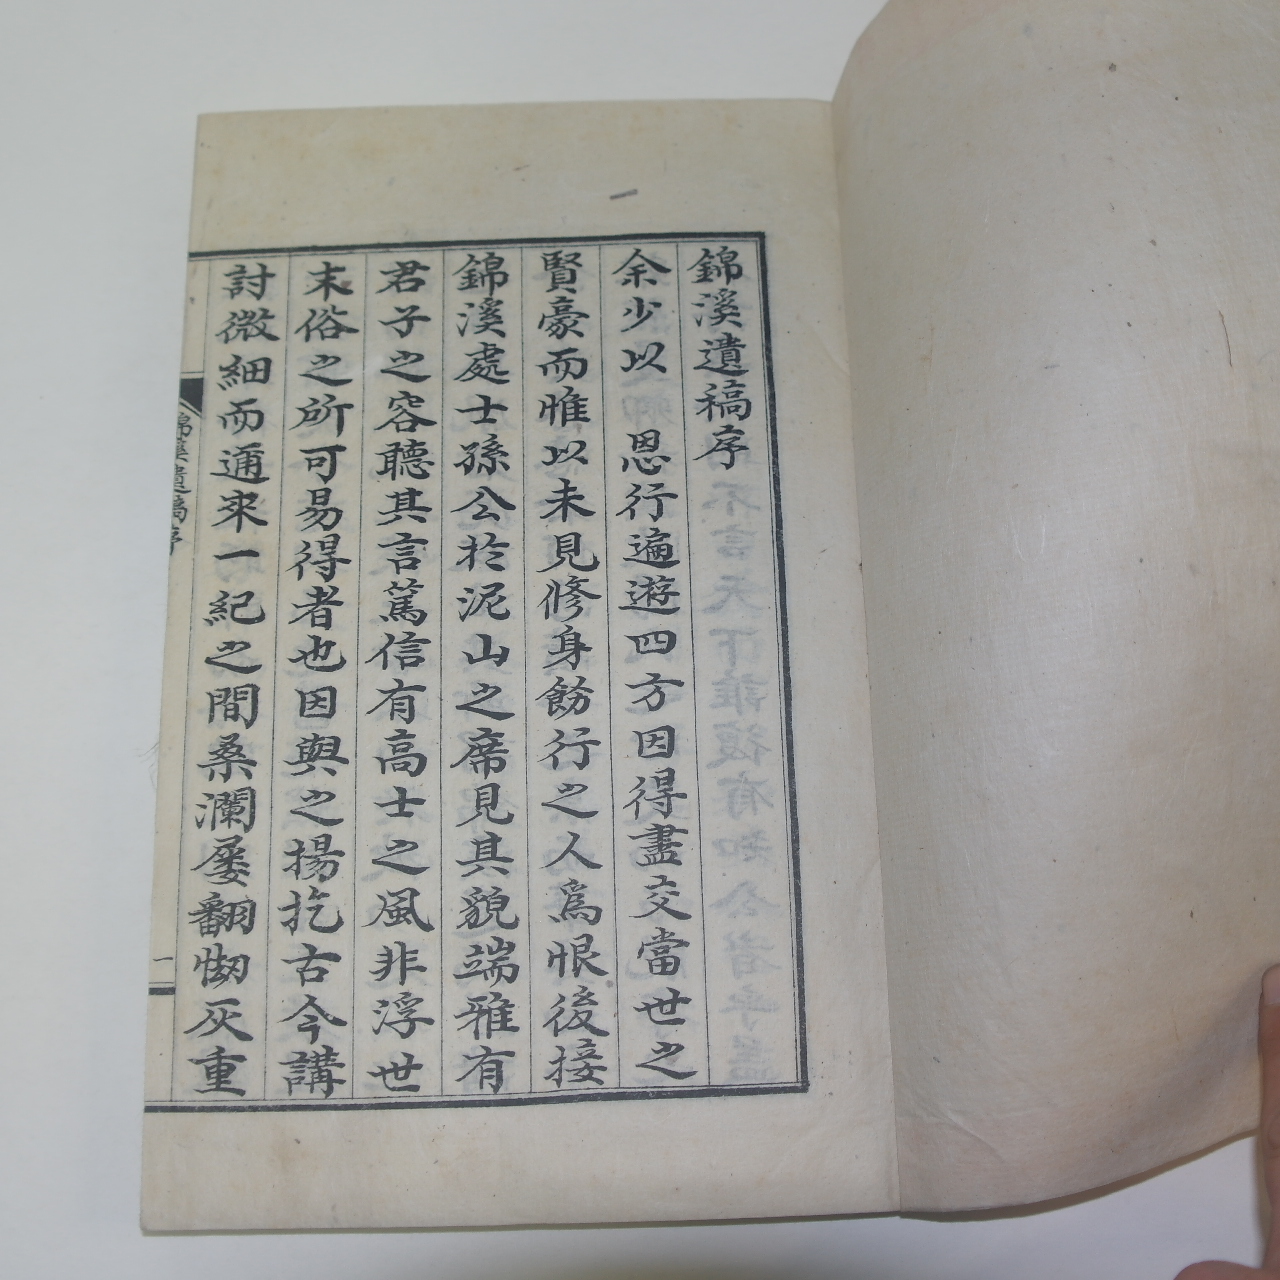 錦溪遺稿序
余少以　恩行遍遊四方因得盡交當世之
賢豪而惟以未見修身飭行之人爲恨後接
錦溪處士孫公於泥山之席見其貌端雅有
君子之容聽其言篤信有高士之風非浮世
末俗之所可易得者也因與之揚扢古今講
討微細而邇來一紀之間桑瀾屢翻刼灰重
錦溪遺稿序
一